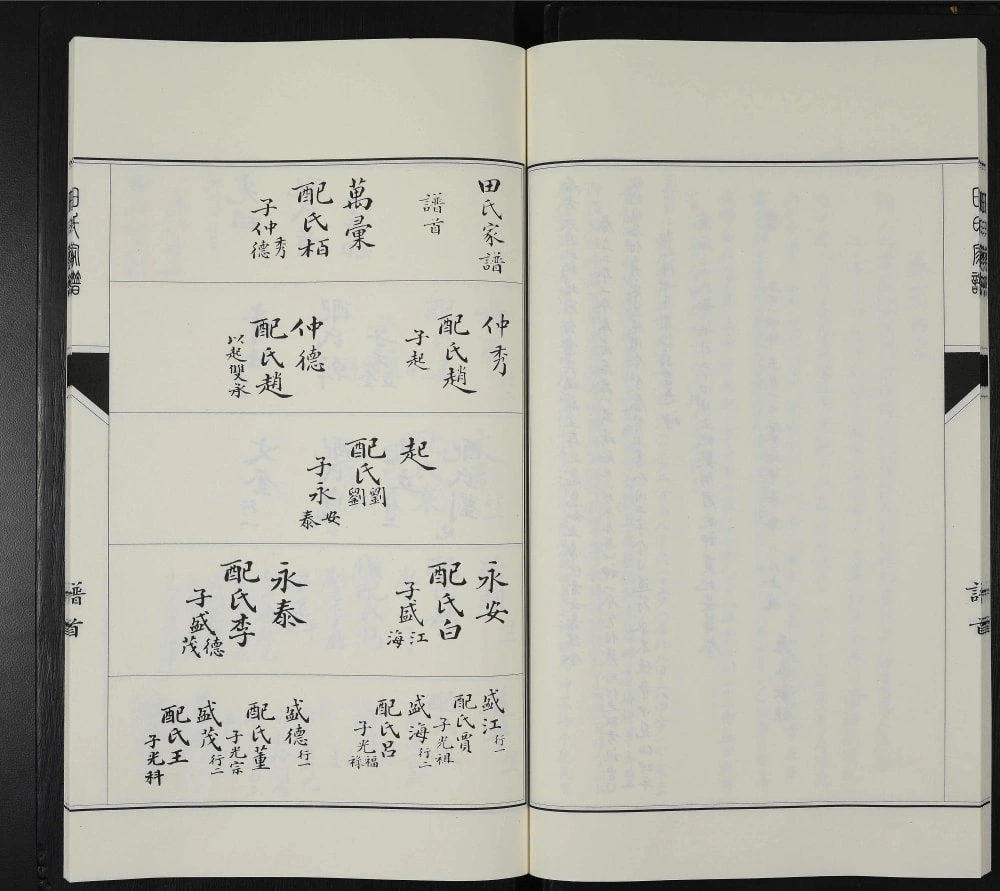 田氏家譜
譜首
萬彙
配氏栢
子仲秀德
仲秀
配氏趙
子起
仲德
配氏趙
以起雙承
起
配氏劉劉
子永安泰
永安
配氏白
子盛江海
永泰
配氏李
子盛德茂
盛江行一
配氏賈
子光祖
盛海行二
配氏呂
子光福祿
盛德行一
配氏董
子光宗
盛茂行二
配氏王
子光科
田氏家譜
譜首